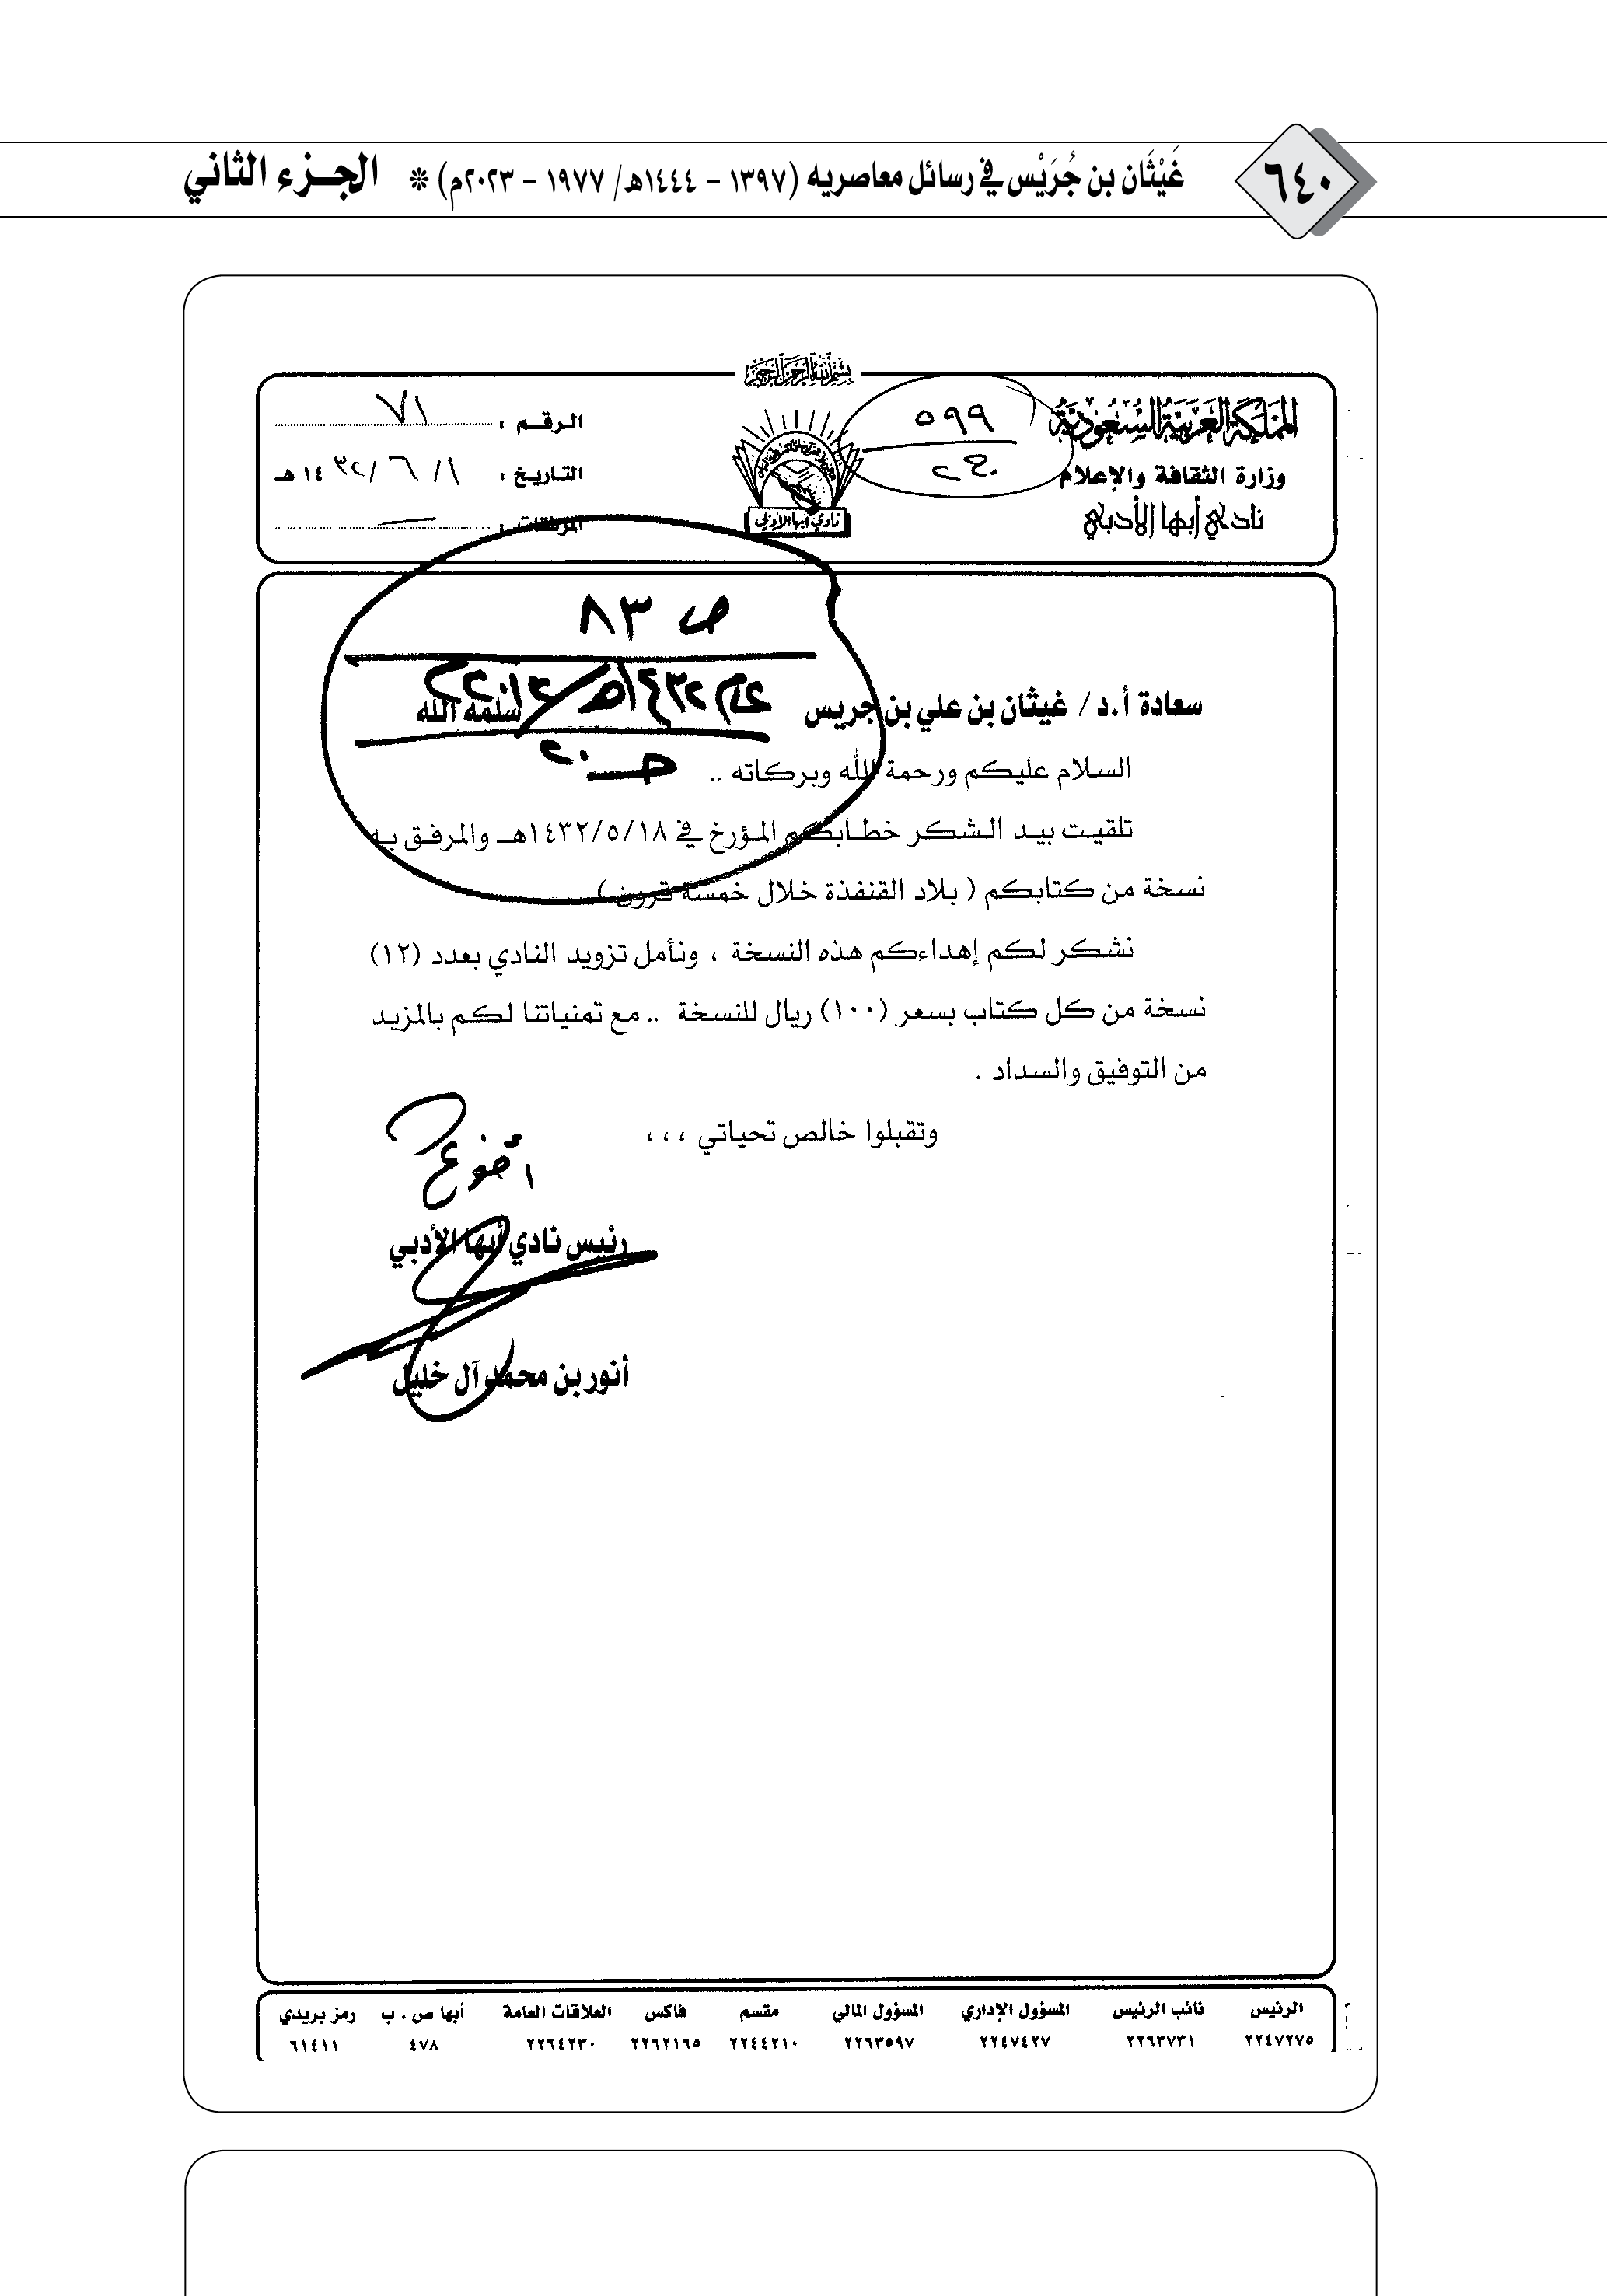 ٦٤٠
غَيْثَان بن جُرَيْس في رسائل معاصريه (١٣٩٧ - ١٤٤٤هـ/ ١٩٧٧ - ٢٠٢٣م) * الجـزء الثاني
بسم الله الرحمن الرحيم
المملكة العربية السعودية
وزارة الثقافة والإعلام
نادي أبها الأدبي
٥٩٩
نادي أبها الأدبي
الرقـم : ٧١
التاريخ : ٩/ ٦ /١٤٣٢هـ
المرفقات :
ص ٨٣
عام ١٤٣٢هـ/
سعادة أ.د/ غيثان بن علي بن جريس سلمه الله
السلام عليكم ورحمة الله وبركاته ..
تلقيت بيد الشكر خطابكم المؤرخ في ١٤٣٢/٥/١٨هـ والمرفق به
نسخة من كتابكم ( بلاد القنفذة خلال خمسة قرون )
نشكر لكم إهداءكم هذه النسخة ، ونأمل تزويد النادي بعدد (١٢)
نسخة من كل كتاب بسعر (١٠٠) ريال للنسخة .. مع تمنياتنا لكم بالمزيد
من التوفيق والسداد .
وتقبلوا خالص تحياتي ، ، ،
رئيس نادي أبها الأدبي
أنور بن محمد آل خليل
الرئيس نائب الرئيس المسؤول الإداري المسؤول المالي مقسم فاكس العلاقات العامة أبها ص . ب رمز بريدي
٢٢٤٧٢٧٥ ٢٢٦٣٧٣١ ٢٢٤٧٤٢٧ ٢٢٦٣٥٩٧ ٢٢٤٤٢١٠ ٢٢٦٢١٦٥ ٢٢٦٤٢٣٠ ٤٧٨ ٦١٤١١